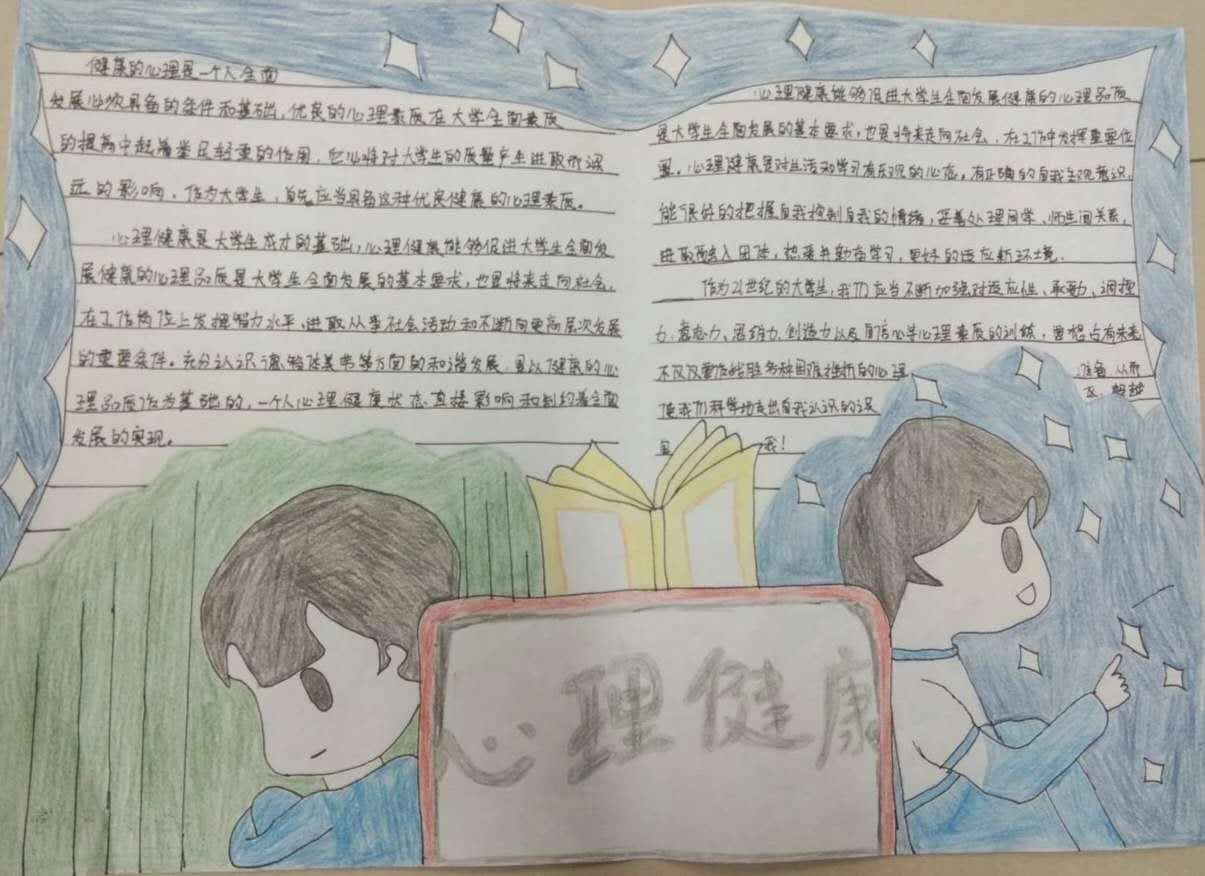 健康的心理是一个人全面
发展必须具备的条件和基础,优良的心理素质在大学全面素质
的提高中起着举足轻重的作用,它必将对大学生的质量产生进取而深
远的影响。作为大学生,首先应当具备这种优良健康的心理素质。
心理健康是大学生成才的基础,心理健康能够促进大学生全面发
展健康的心理品质是大学生全面发展的基本要求,也是将来走向社会,
在工作岗位上发挥智力水平、进取从事社会活动和不断向更高层次发展
的重要条件。充分认识德智体美劳等方面的和谐发展,是以健康的心
理品质作为基础的,一个人心理健康状态直接影响和制约着全面
发展的实现。
心理健康能够促进大学生全面发展健康的心理品质
是大学生全面发展的基本要求,也是将来走向社会,在工作中发挥重要位
置。心理健康是对生活和学习有乐观的心态,有正确的自我主观意识,
能很好的把握自我控制自我的情绪,妥善处理同学、师生间关系,
进取融入团体,热爱并勤奋学习,更好的适应新环境.
作为21世纪的大学生,我们应当不断加强对适应性、承受力、调控
力、意志力、思维力、创造力以及自信心等心理素质的训练,要想占有未来
不仅仅要有战胜各种困难挫折的心理 准备,从而
使我们科学地走出自我认识的误 区,超越
我!
心理健康